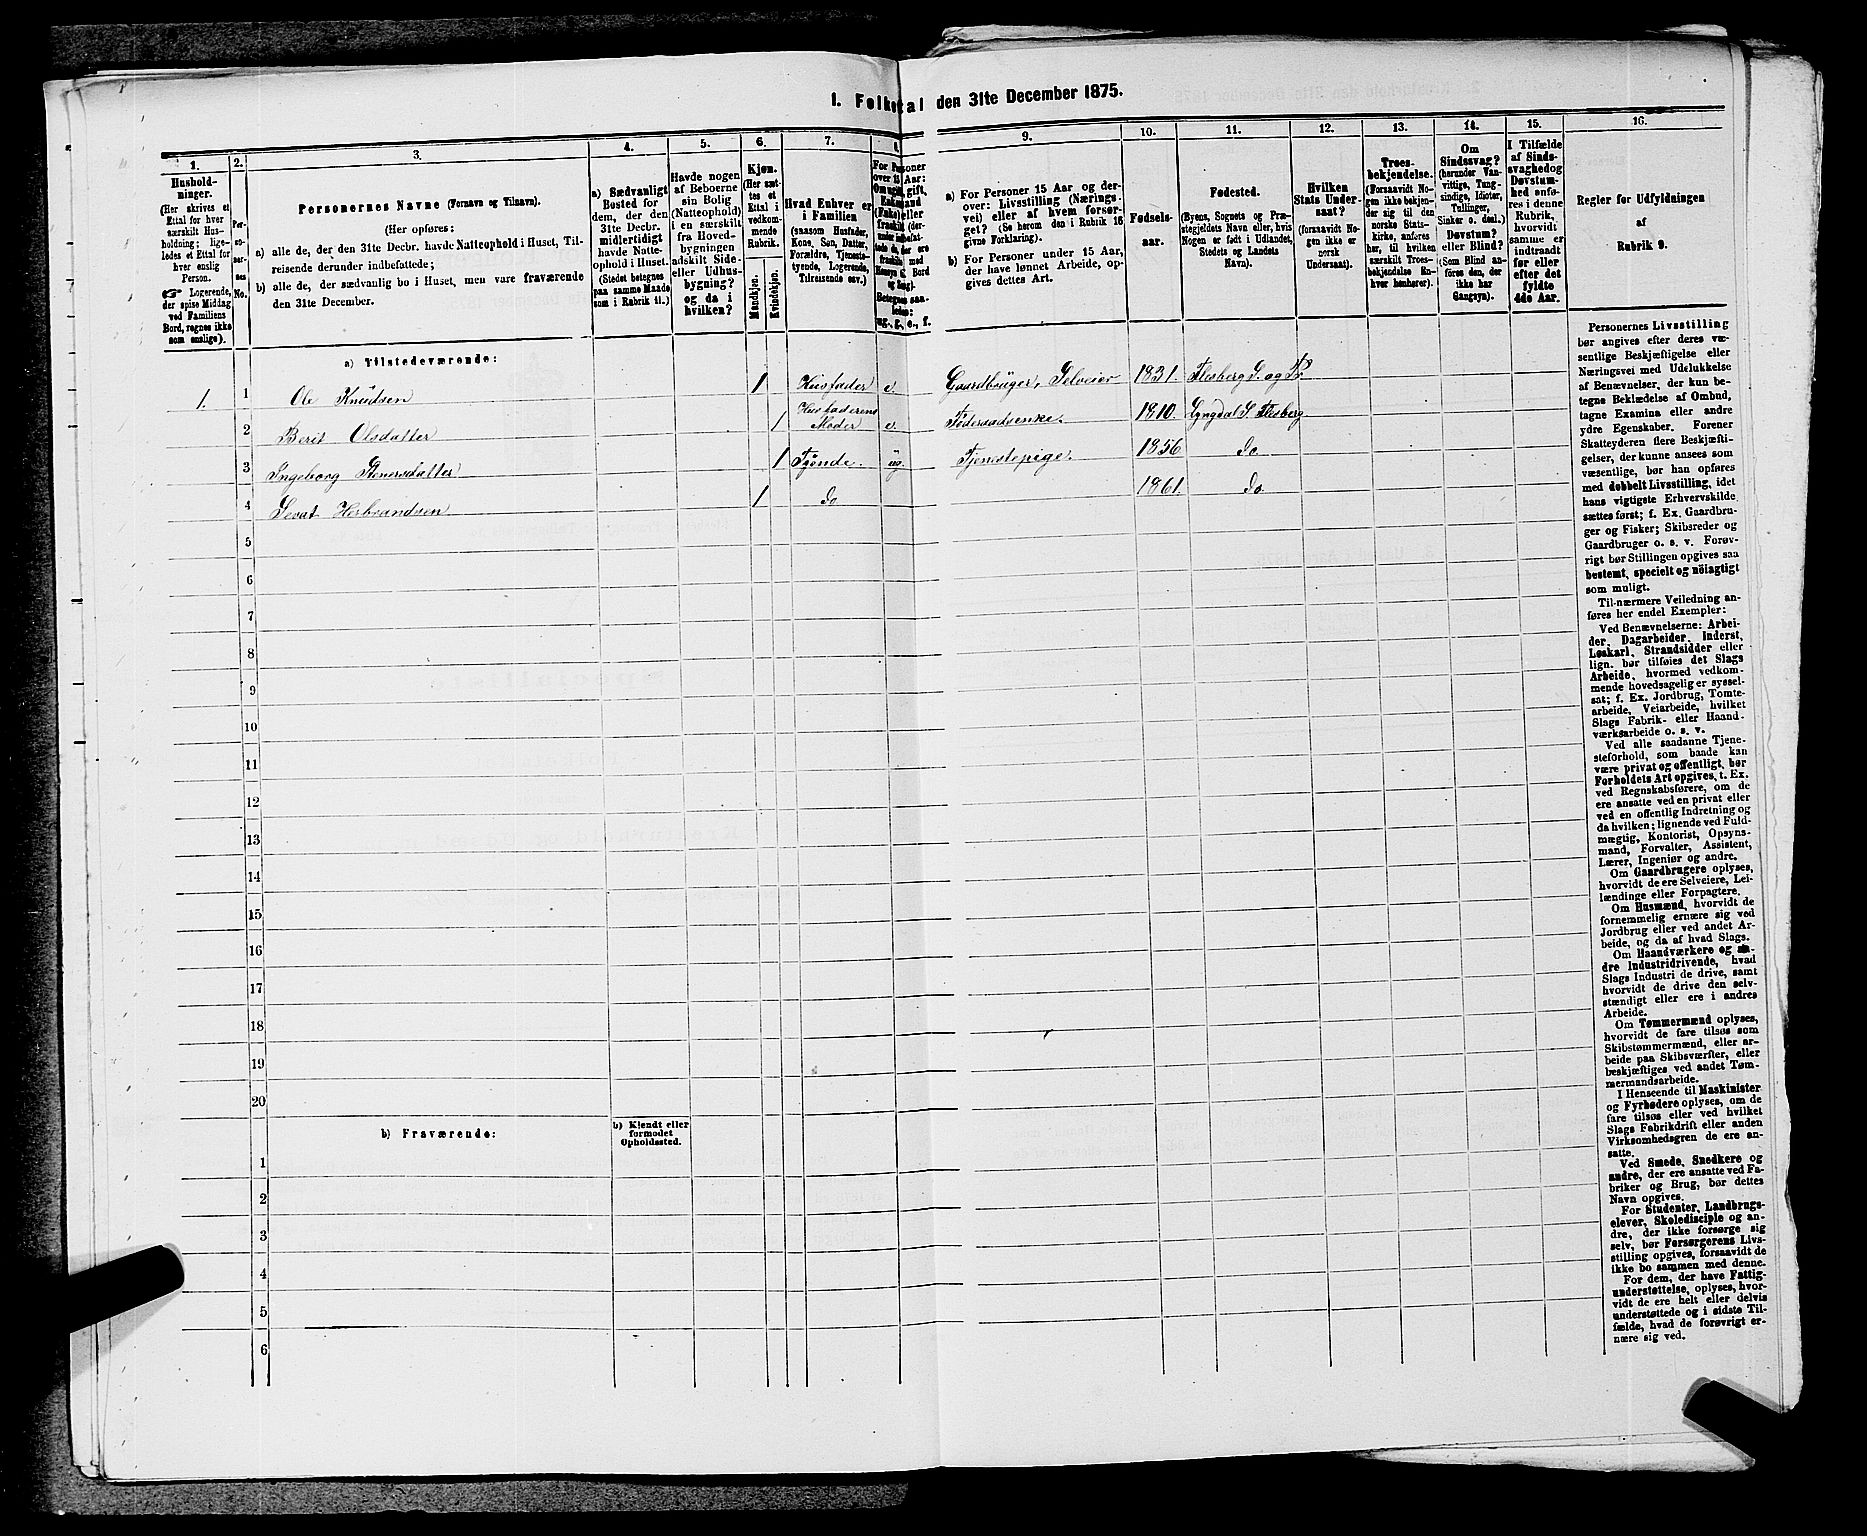 1. Folketal den 31te December 1875.
1.
2.
3.
4.
5.
6.
7.
8.
9.
10.
11.
12.
13.
14.
15.
16.
Hushold-
ninger.
(Her skrives et
Ettal for hver
særskilt Hus-
holdning; lige-
ledes et Ettal for
hver enslig
Person.
☞ Logerende,
der spise Middag
ved Familiens
Bord, regnes ikke
som enslige).
Per-
so-
ner-
nes
No.
Personernes Navne (Fornavn og Tilnavn).
(Her opføres:
a) alle de, der den 31te Decbr. havde Natteophold i Huset, Til-
reisende derunder indbefattede;
b) alle de, der sædvanlig bo i Huset, men vare fraværende
den 31te December.
a) Sædvanligt
Bosted for
dem, der den
31te Decbr.
midlertidigt
havde Natte-
ophold i Huset.
(Stedet betegnes
paa samme Maade
som i Rubrik 11.)
Havde nogen
af Beboerne
sin Bolig
(Natteophold)
i en særskilt
fra Hoved-
bygningen
adskilt Side-
eller Udhus-
bygning?
og da i
hvilken?
Kjøn.
(Her sæt-
tes et
Ettal i
vedkom-
mende
Rubrik.
Mandkjøn.
Kvindekjøn.
Hvad Enhver er
i Familien
(saasom Husfader,
Kone, Søn, Datter,
Forældre, Tjeneste-
tyende, Logerende,
Tilreisende osv.)
For Personer
over 15 Aar:
ug., g., e., f.
a) For Personer 15 Aar og der-
over: Livsstilling (Nærings-
vei) eller af hvem forsør-
get? (Se herom den i Rubrik 16
givne Forklaring).
b) For Personer under 15 Aar,
der have lønnet Arbeide, op-
gives dettes Art.
Fødsels-
aar.
Fødested.
(Byens, Sognets og Præ-
stegjeldets Navn eller, hvis
Nogen er født i Udlandet,
Stedets og Landets
Navn).
Hvilken
Stats Under-
saat?
(foraavidt No-
gen ikke er
norsk
Undersaat).
Troes-
bekjendelse.
(Forsaavidt No-
gen ikke bekjen-
der sig til den
norske Stats-
kirke, anføres
her, til hvilken
særskilt Troes-
bekjendelse En-
hver henhører).
Om
Sindssvag?
(herunder Van-
vittige, Tung-
sindige, Idioter,
Tullinger,
Sinker o. desl.)
Døvstum?
eller Blind?
(Som Blind an-
føres den, der
ikke har
Gangsyn).
I Tilfælde
af Sinds-
svaghed og
Døvstum-
hed anfø-
res i denne
Rubrik,
hvorvidt
samme er
indtraadt
før eller
efter det
fyldte
4de Aar.
Regler for Udfyldningen
af
Rubrik 9.
a) Tilstedeværende:
1. 1 Ole Knudsen 1 Husfader e. Gaardbruger, Selveier 1831. Flesberg S. og Pr.
2 Berit Olsdatter 1 Husfaderens Moder e. Føderaadsenke. 1810. Lyngdal S. Flesberg
3 Ingeborg Stenersdatter 1 Tjende. ug. Tjenestepige. 1856 do
4 Sevat Herbrandsen 1 do 1861. do
5
6
7
8
9
10
11
12
13
14
15
16
17
18
19
20
b) Fraværende:
b) Kjendt eller
formodet
Opholdssted.
1
2
3
4
5
6
Personernes Livsstilling
bør angives efter deres væ-
sentlige Beskjæftigelse eller
Næringsvei med Udelukkelse
af Benævnelser, der kun be-
tegne Beklædelse af Ombud,
tagne Examina eller andre
ydre Egenskaber. Forener
Skatteyderen flere Beskjæfti-
gelser, der kunne ansees som
væsentlige, bør han opføres
med dobbelt Livsstilling, idet
hans vigtigste Erhvervskilde
sættes først; f. Ex. Gaardbru-
ger og Fisker; Skibsreder og
Gaardbruger o. s. v. Forøv-
rigt bør Stillingen opgives saa
bestemt, specielt og nöiagtigt
som muligt.
Til nærmere Veiledning an-
føres her endel Exempler:
Ved Benævnelserne: Arbei-
der, Dagarbeider, Inderst,
Løskarl, Strandsidder eller
lign. bør tilføies det Slags
Arbeide, hvormed vedkom-
mende hovedsagelig er syssel-
sat; f. Ex. Jordbrug, Tomte-
arbeide, Veiarbeide, hvilket
Slags Fabrik- eller Haand-
værksarbeide o. s. v.
Ved alle saadanne Tjene-
steforhold, som baade kan
være privat og offentligt, bør
Forholdets Art opgives, t. Ex.
ved Regnskabsførere, om de
ere ansatte ved en privat eller
ved en offentlig Indretning og
da hvilken; lignende ved Fuld-
mægtig, Kontorist, Opsyns-
mand, Forvalter, Assistent,
Lærer, Ingeniør og andre.
Om Gaardbrugere oplyses,
hvorvidt de ere Selveiere, Lei-
lændinge eller Forpagtere.
Om Husmænd, hvorvidt de
fornemmelig ernære sig ved
Jordbrug eller ved andet Ar-
beide, og da af hvad Slags.
Om Haandværkere og an-
dre Industridrivende, hvad
Slags Industri de drive, samt
hvorvidt de drive den selv-
stændigt eller ere i andres
Arbeide.
Om Tømmermænd oplyses,
hvorvidt de fare tilsøs som
Skibstømmermænd, eller ar-
beide paa Skibsværfter, eller
beskjæftiges ved andet Tøm-
mermandsarbeide.
I Henseende til Maskinister
og Fyrbødere oplyses, om de
fare tilsøs eller ved hvilket
Slags Fabrikdrift eller anden
Virksomhedsgren de ere an-
satte.
Ved Smede, Snedkere og
andre, der ere ansatte ved Fa-
briker og Brug, bør dettes
Navn opgives.
For Studenter, Landbrugs-
elever, Skoledisciple og an-
dre, der ikke forsørge sig
selv, bør Forsørgerens Livs-
stilling opgives, forsaavidt de
ikke bo sammen med denne.
For dem, der have Fattig-
understøttelse, oplyses, hvor-
vidt de ere helt eller delvis
understøttede og i sidste Til-
fælde, hvad de forøvrigt er-
nære sig ved.